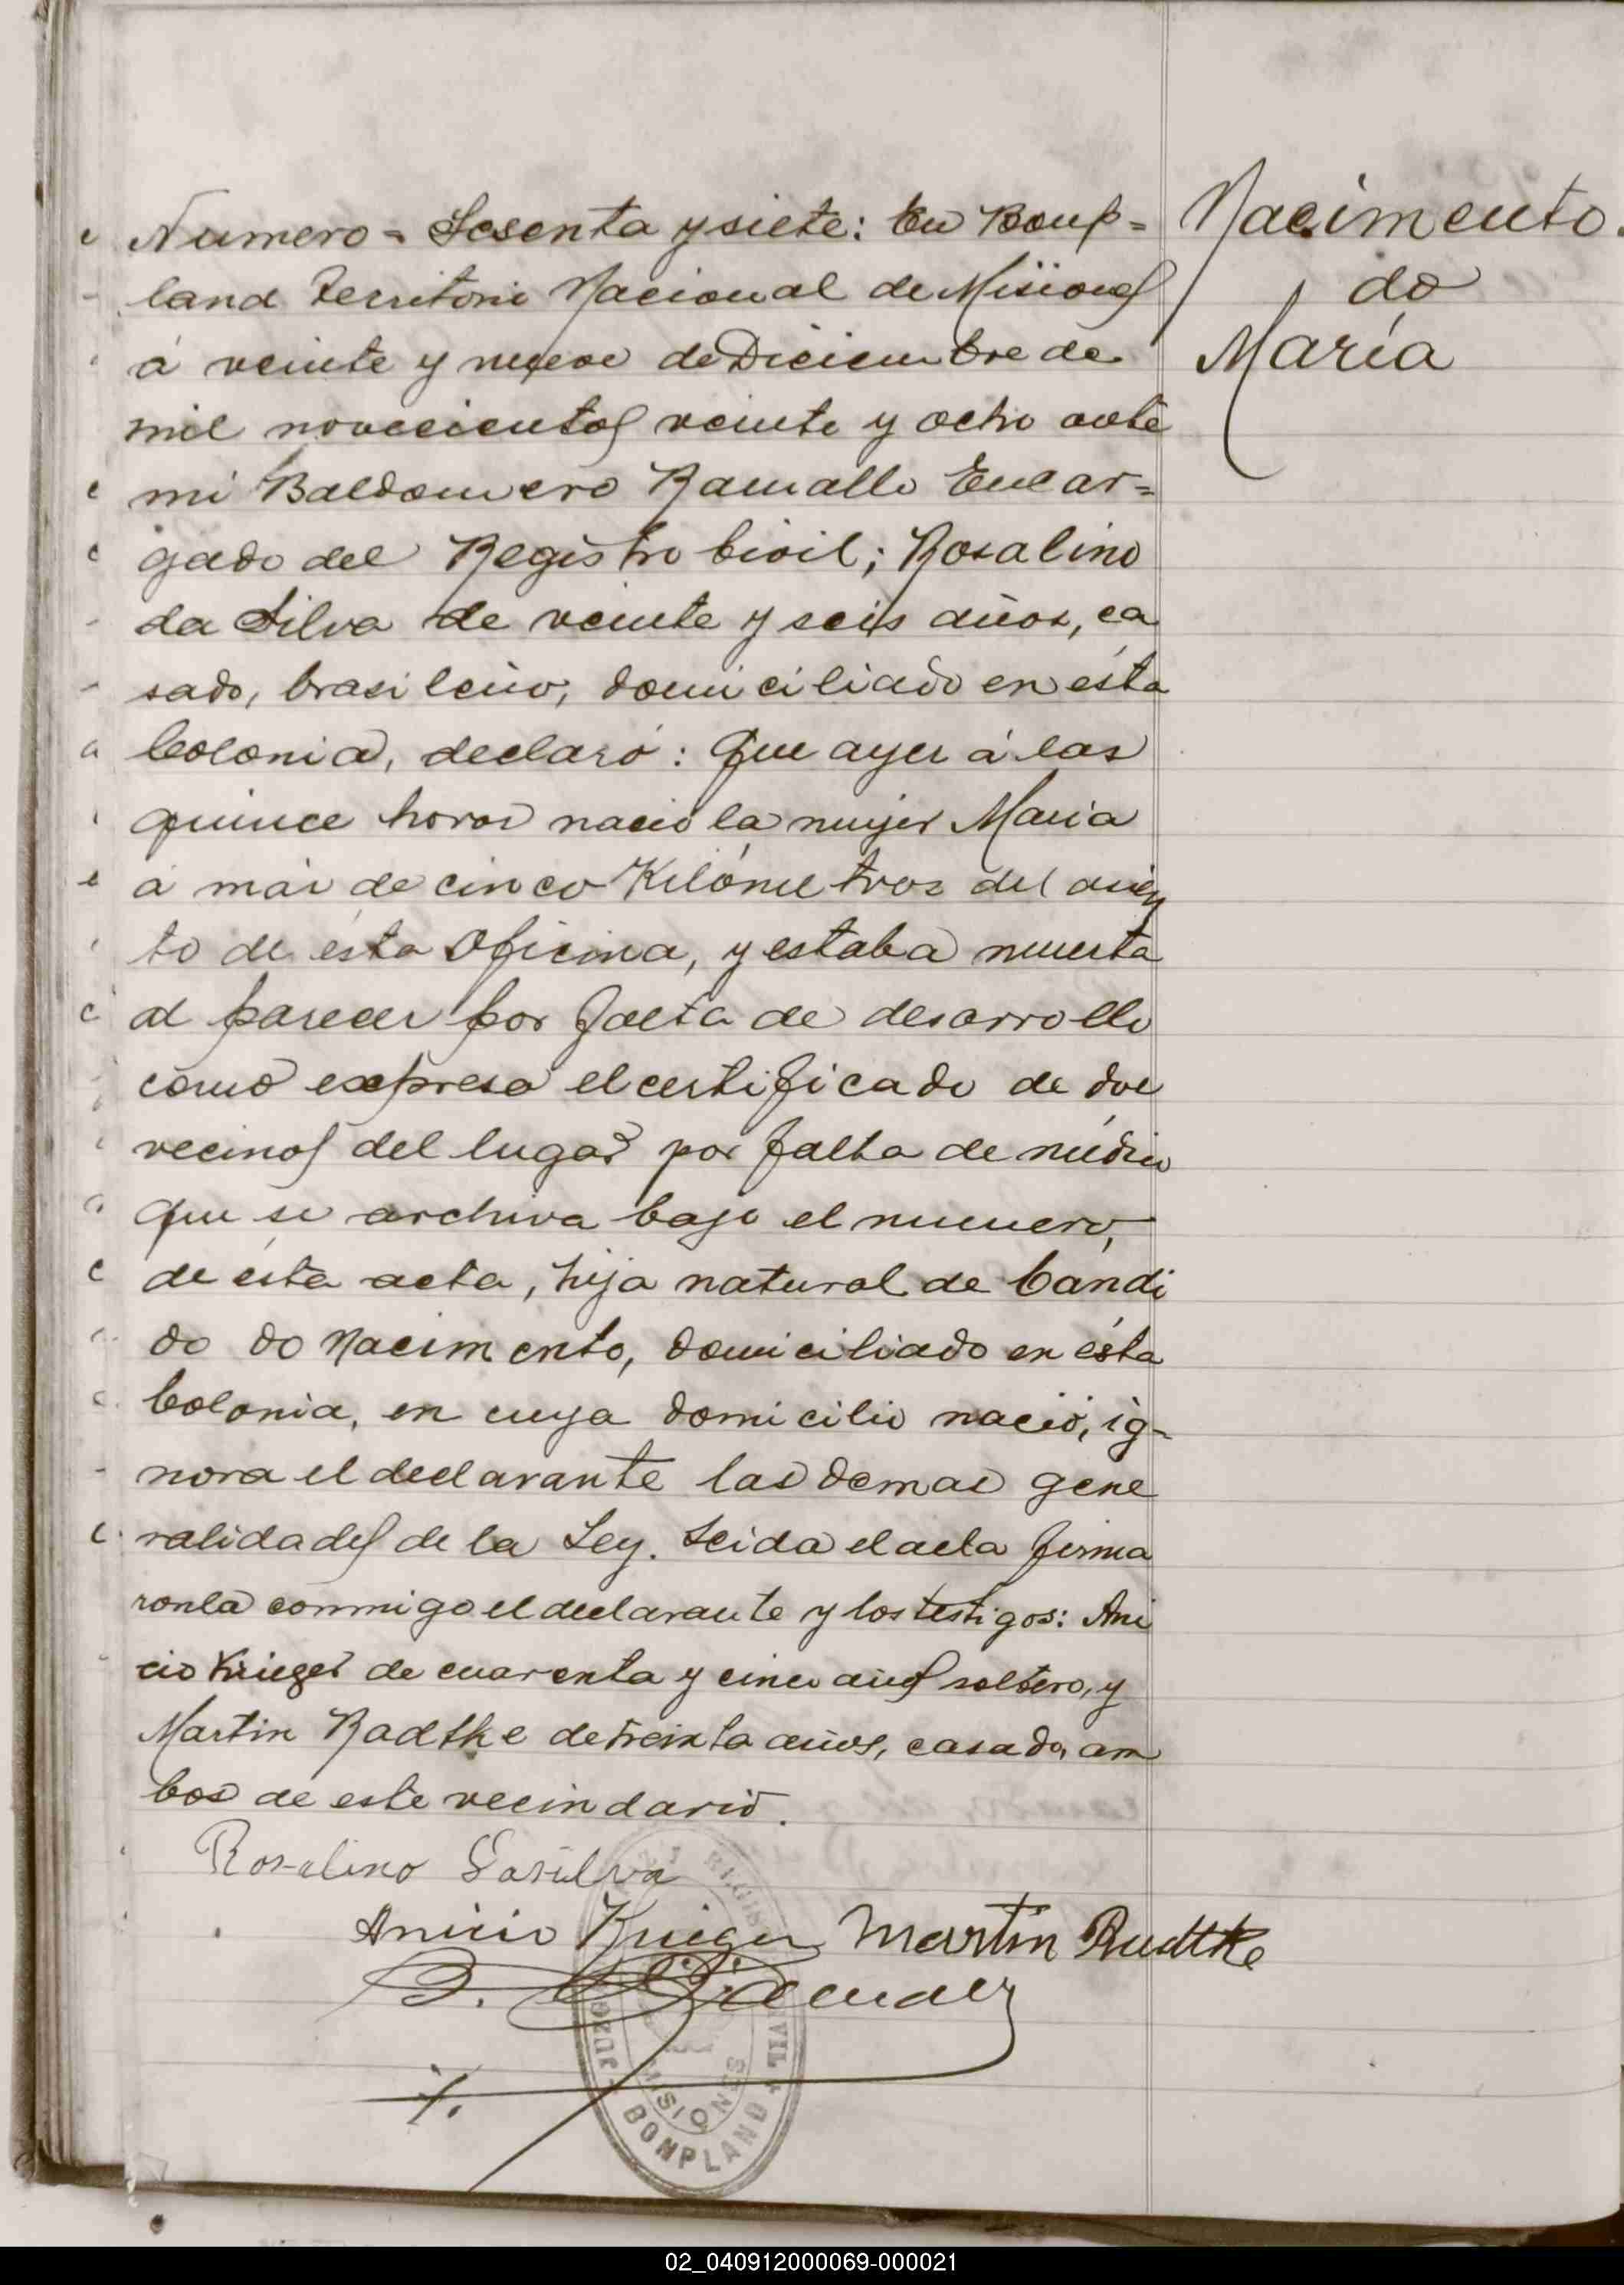 Numero = Sesenta y siete: En Bonp=
land Territorio Nacional de Misiones
á veinte y nueve de Diciembre de
mil novecientos veinte y ocho ante
mi Baldomero Ramallo Encar=
gado del Registro Civil; Rosalino
da Silva de veinte y seis años, ca
sado, brasileño, domiciliado en ésta
Colonia, declaró: Que ayer á las
quince horas nació la mujer Maria
á más de cinco Kilómetros del asien
to de ésta Oficina, y estaba muerta
al parecer por falta de desarrollo
como expresa el certificado de dos
vecinos del lugar por falta de médico
que se archiva bajo el numero,
de ésta acta, hija natural de Candi
do do Nacimento, domiciliado en ésta
Colonia, en cuya domicilio nació, ig-
nora el declarante las demas gene
ralidades de la Ley. Leida el acta firma
ronla conmigo el declarante y los testigos: Ani
cio Krieger de cuarenta y cinco años soltero, y
Martin Radtke de treinta años, casado, am
bos de este vecindario.
Nacimento.
do
María
Rosalino Dasilva
Anicio Krieger Martin Radtke
B. Ramallo
REGISTRO CIVIL
MISIONES
BONPLAND
02_040912000069-000021